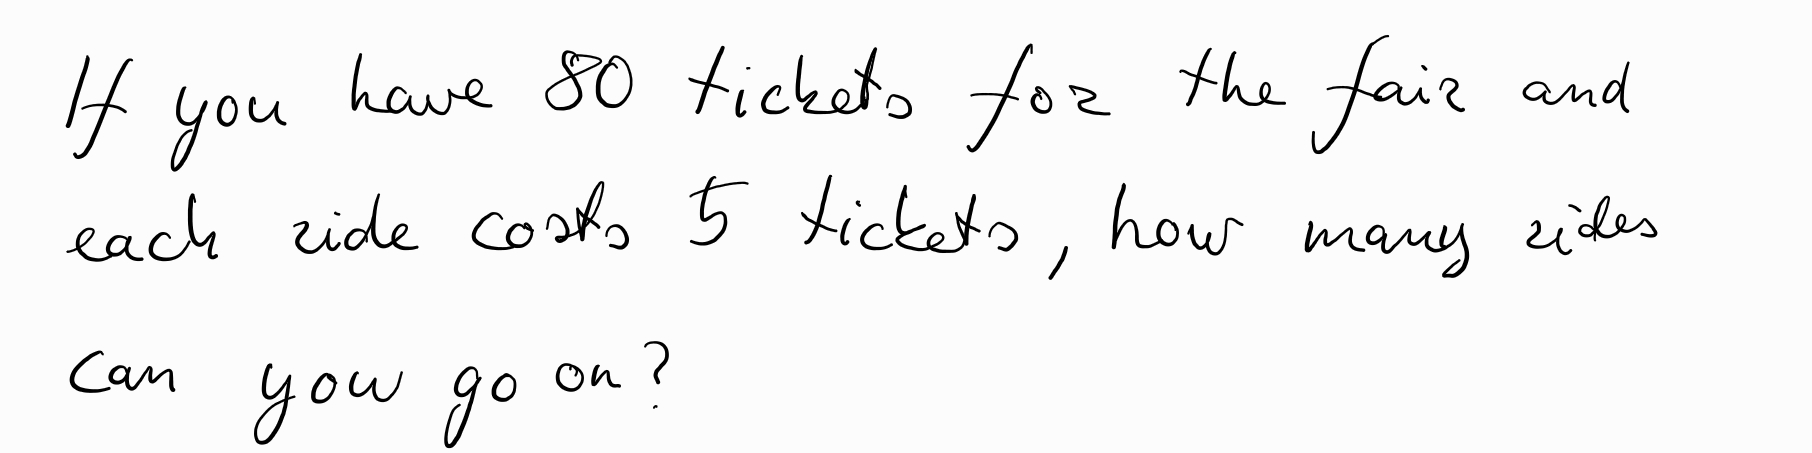 If you have 80 tickets for the fair and
each ride costs 5 tickets, how many rides
can you go on?